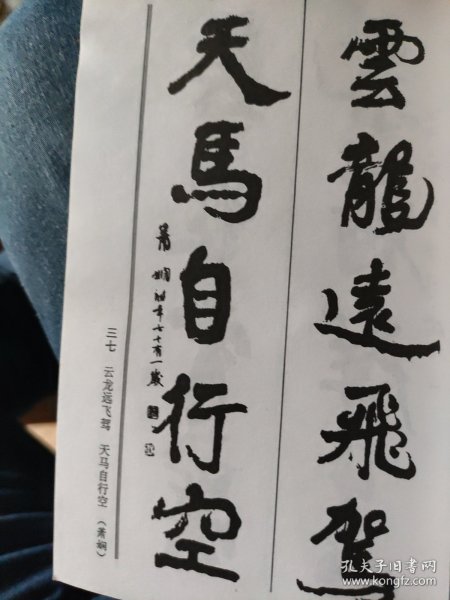 雲龍遠飛駕
天馬自行空
蕭嫻時年七十有一歲
三七 云龙远飞驾 天马自行空 （萧娴）
孔夫子旧书网
www.kongfz.com